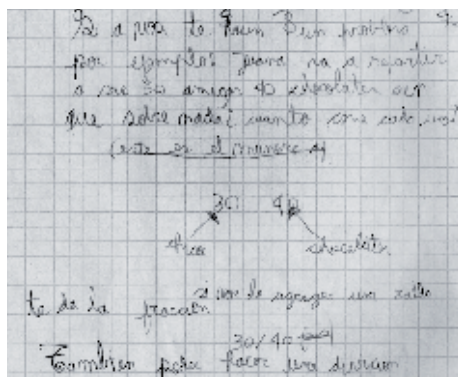 a vos te hacen un problema
por ejemplo: juana va a repartir
a sus 30 amigos 40 chocolates sin
que sobre nada ¿cuanto come cada uno?
(este es el numero
30 40
chocolates
te da la fracción si vos le agregas una
30/40
Tambien podes hacer una division